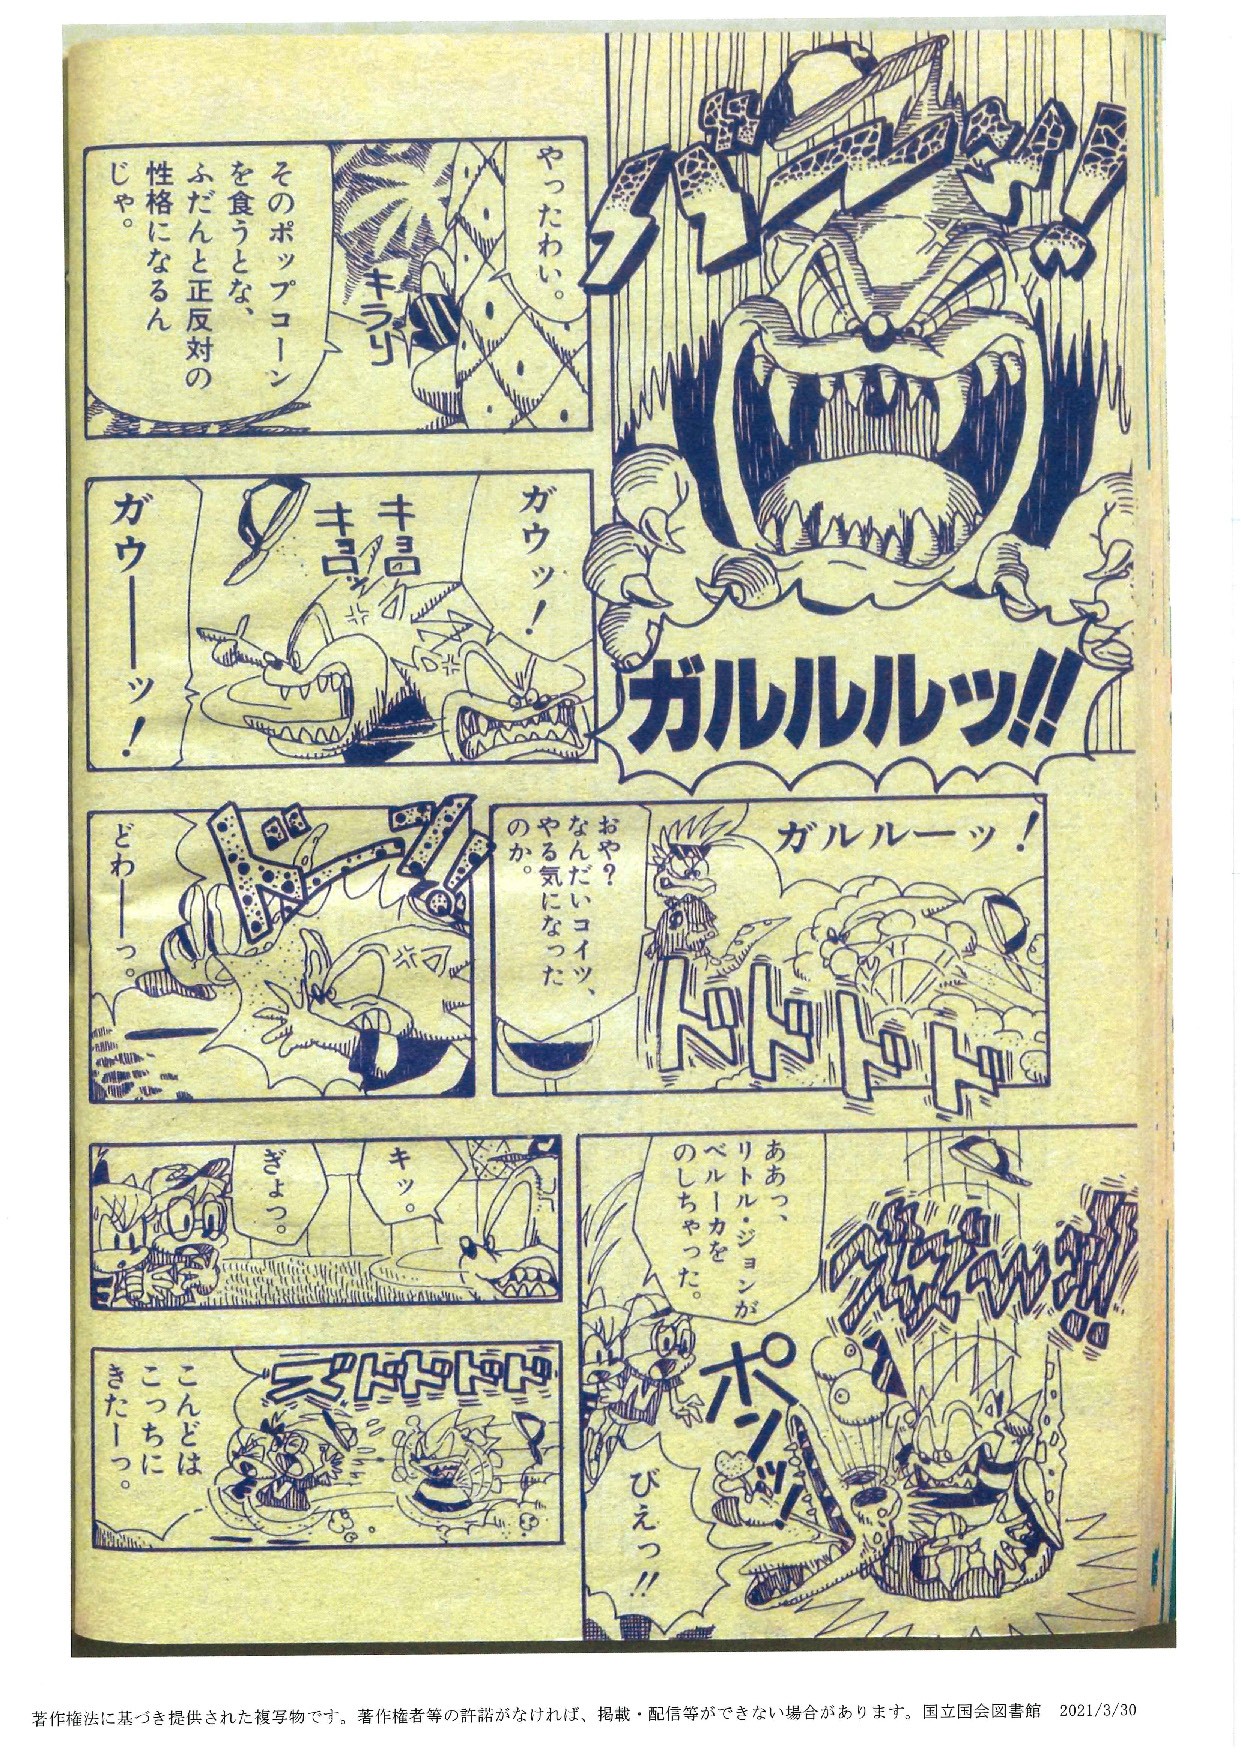 バーン!
ガルルルッ!!
やったわい。
キラリ
そのポップコーン
を食うとな、
ふだんと正反対の
性格になるん
じゃ。
ガウッ!
キョロ
キョロッ
ガウーーッ!
ガルルーッ!
ドドドド
おや?
なんだいコイツ、
やる気になった
のか。
ドーン!!
どわーーっ。
ああっ、
リトル・ジョンが
ベルーカを
のしちゃった。
ポンッ!
びえっ!!
キッ。
ぎょっ。
ズドドドド
こんどは
こっちに
きたーっ。
著作権法に基づき提供された複写物です。著作権者等の許諾がなければ、掲載・配信等ができない場合があります。国立国会図書館 2021/3/30